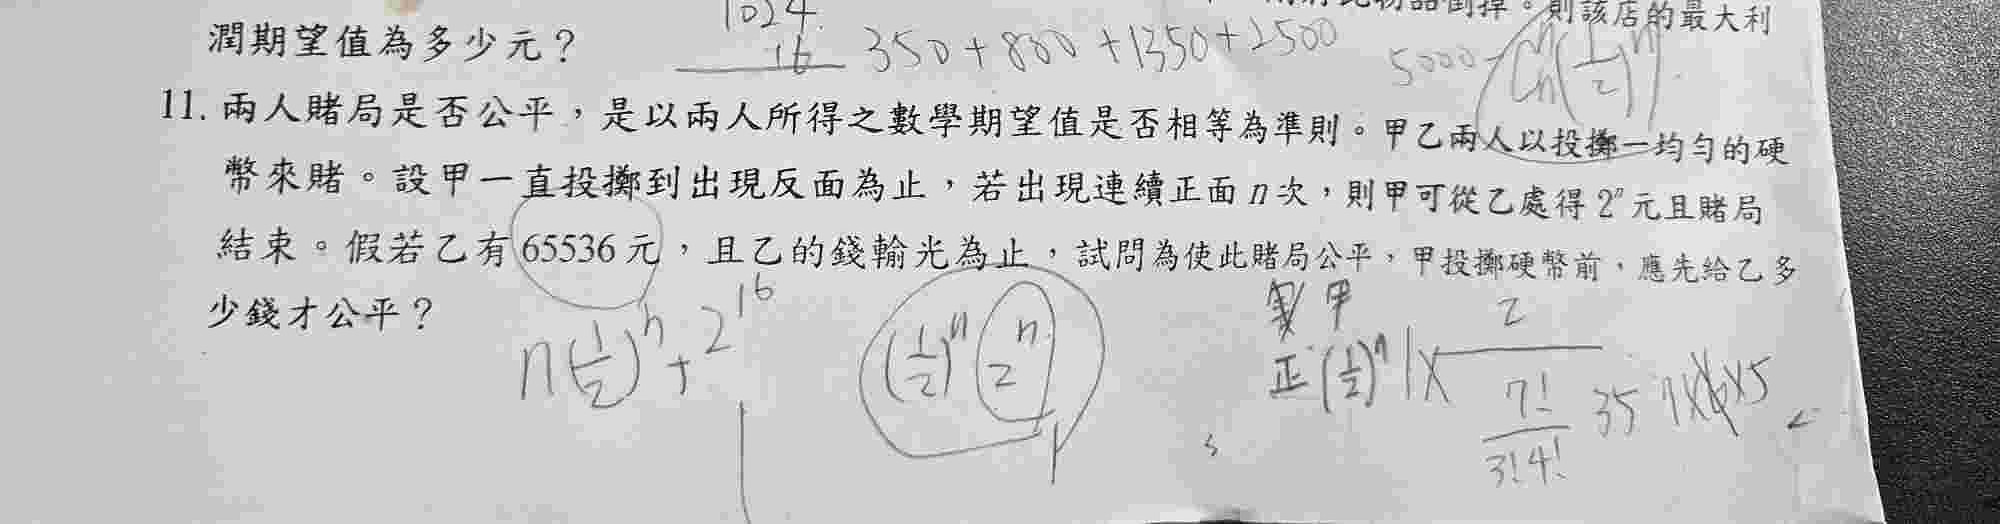 1024
則該店的最大利
潤期望值為多少元？
16 350+800+1350+2500
5000-Cn(1/2)^n
11. 兩人賭局是否公平，是以兩人所得之數學期望值是否相等為準則。甲乙兩人以投擲一均勻的硬
幣來賭。設甲一直投擲到出現反面為止，若出現連續正面n次，則甲可從乙處得2ⁿ元且賭局
結束。假若乙有65536元，且乙的錢輸光為止，試問為使此賭局公平，甲投擲硬幣前，應先給乙多
少錢才公平？
n(1/2)^n+2^16
(1/2)^n 2^n
甲
正(1/2)^n
2
7!
3!4!
35 7×6×5